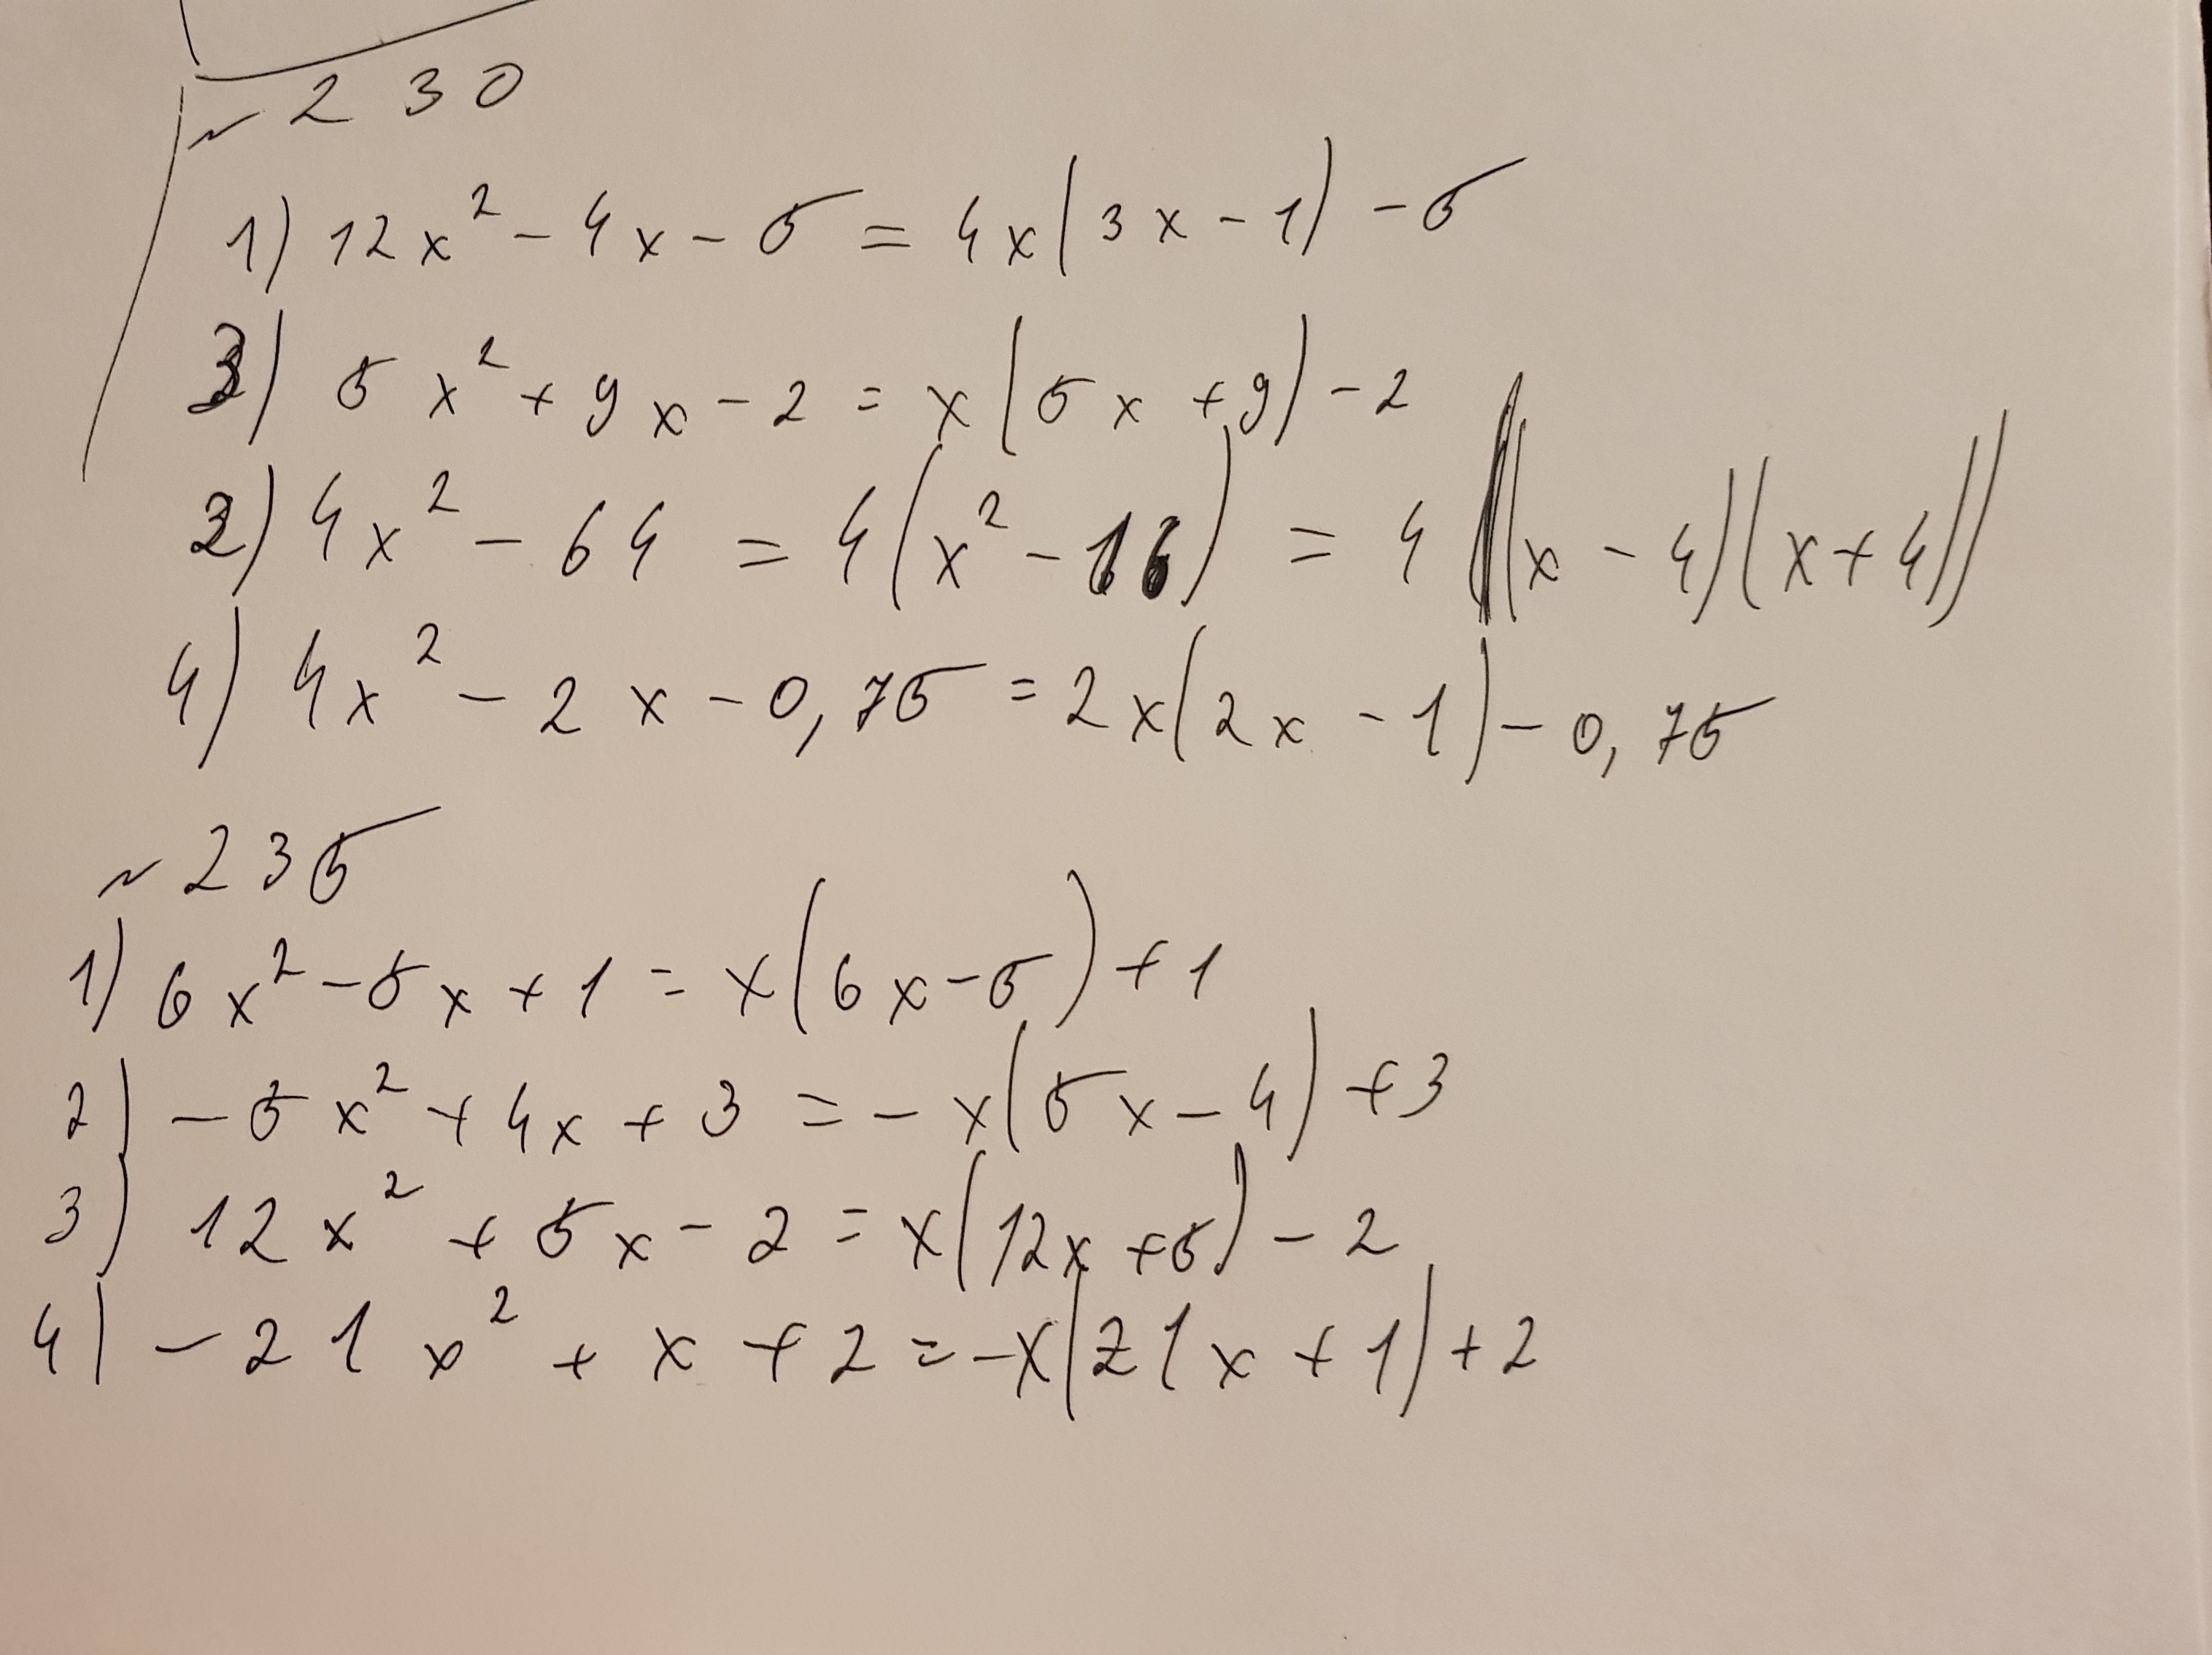 ~ 230
1) 12x² - 4x - 5 = 4x(3x - 1) - 5
3) 5x² + 9x - 2 = x(5x + 9) - 2
2) 4x² - 64 = 4(x² - 16) = 4((x - 4)(x + 4))
4) 4x² - 2x - 0,75 = 2x(2x - 1) - 0,75
~ 235
1) 6x² - 5x + 1 = x(6x - 5) + 1
2) - 5x² + 4x + 3 = - x(5x - 4) + 3
3) 12x² + 5x - 2 = x(12x + 5) - 2
4) - 21x² + x + 2 = -x(21x + 1) + 2